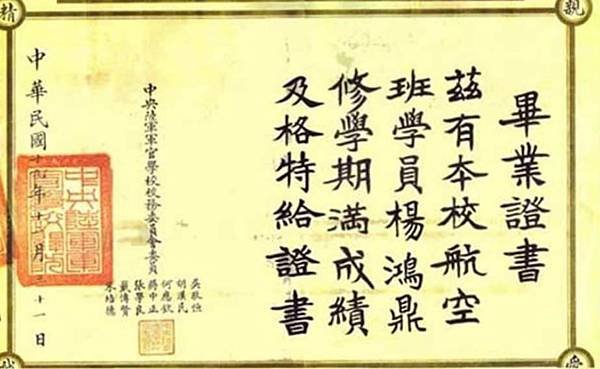 親
精
畢業證書
茲有本校航空
班學員楊鴻鼎
修學期滿成績
及格特給證書
中央陸軍軍官學校校務委員會委員
吳敬恒
胡漢民
何應欽
蔣中正
張學良
戴傳賢
朱培德
中華民國十年十月十一日
愛